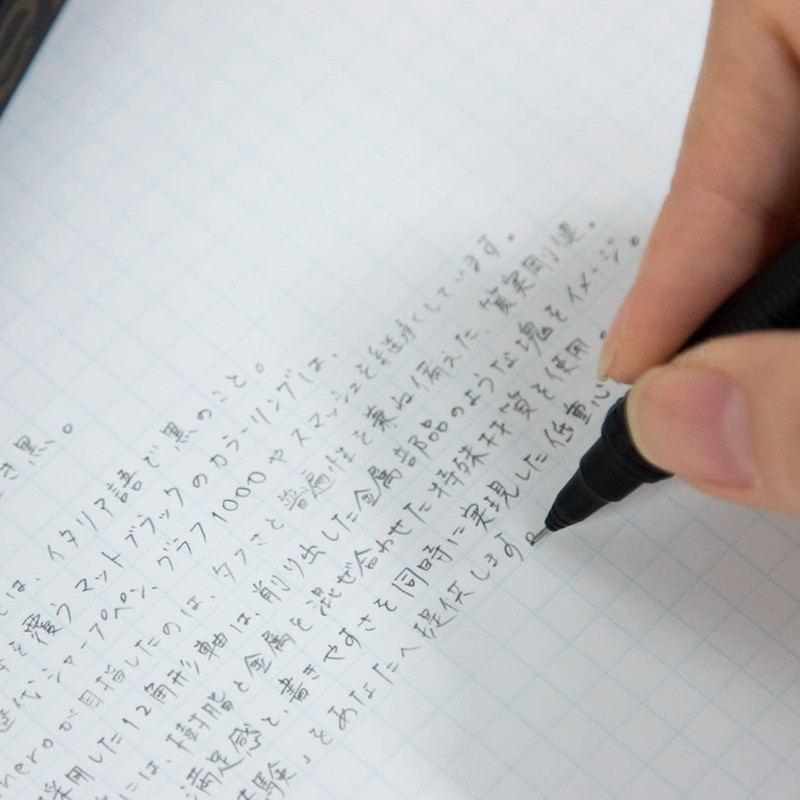 き黒。
とは、イタリア語で黒のこと。
を覆うマットブラックのカラーリングは、
代シャープペン、グラフ1000やスマッシュを継承しています。
neroが目指したのは、タフさと普遍性を兼ね備えた、質実剛健。
採用した12角形軸は、削り出した金属部品のような塊をイメージ。
には、樹脂と金属を混ぜ合わせた特殊材質を使用。
満足感と、書きやすさを同時に実現した低重心
体験」をあなたへ提供します。